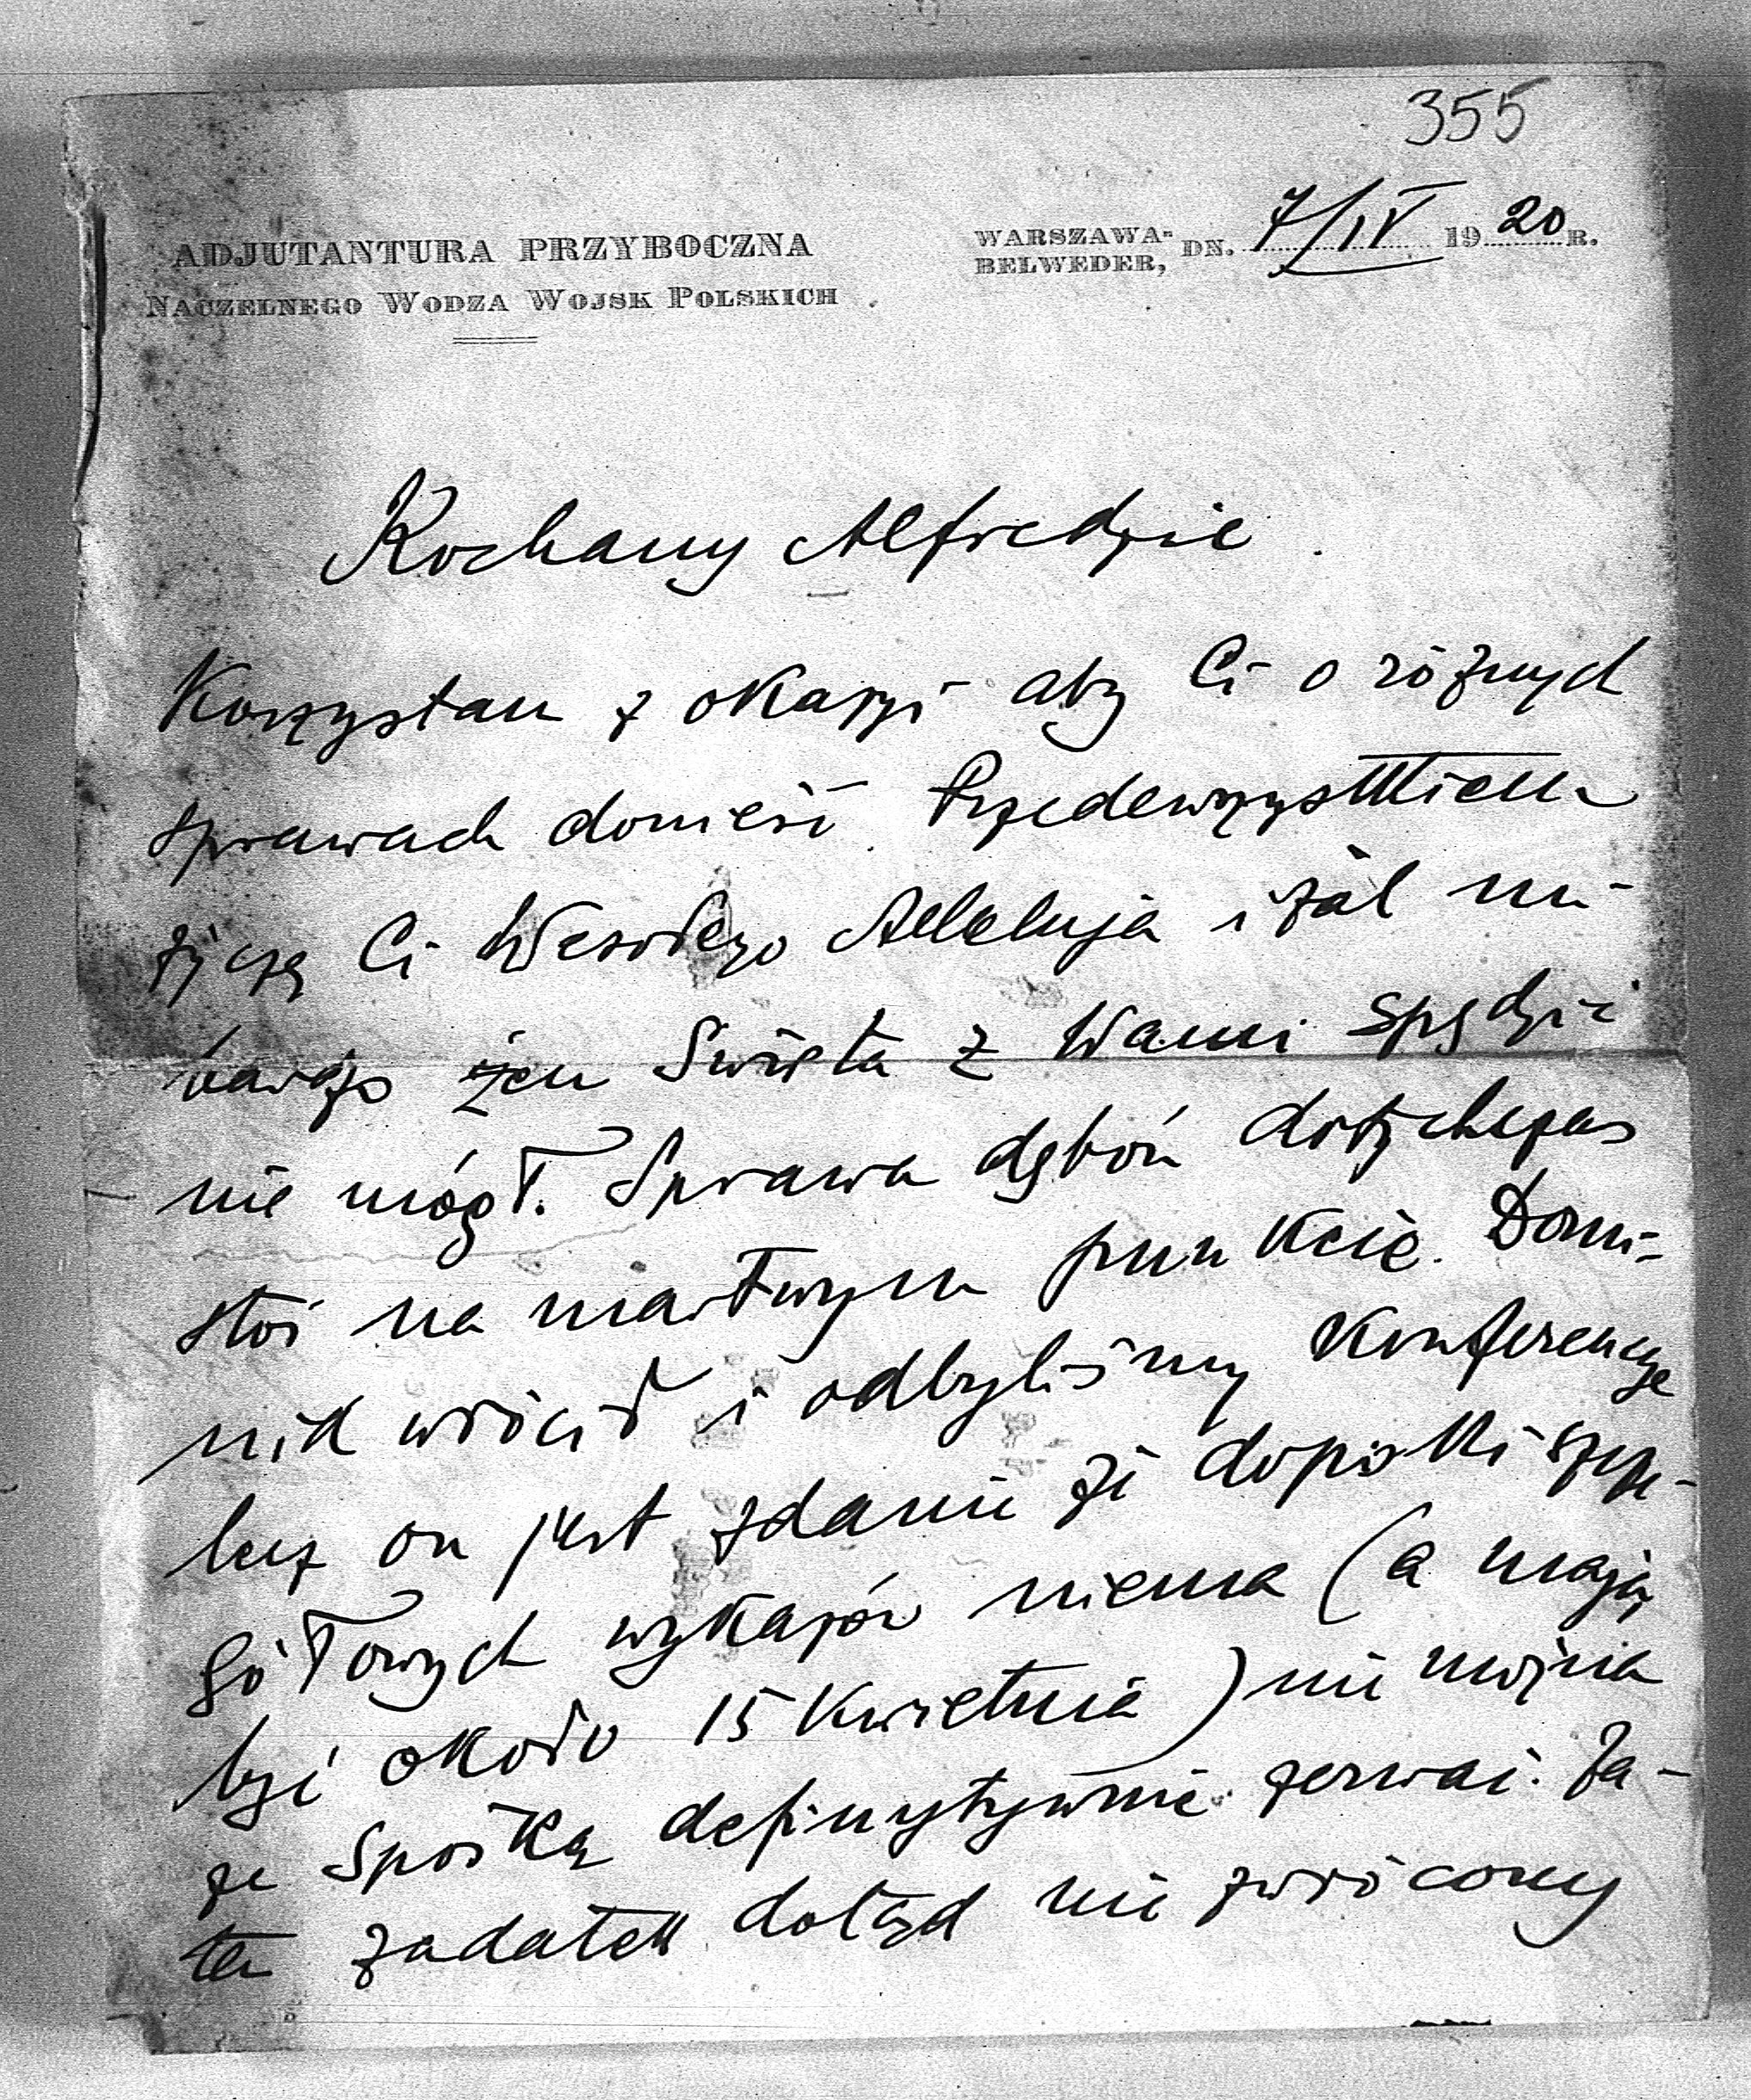 355
ADJUTANTURA PRZYBOCZNA
NACZELNEGO WODZA WOJSK POLSKICH
WARSZAWA-
BELWEDER, DN. 7/IV 1920 R.
Kochany Alfredzie.
Korzystam z okazyi aby Ci o różnych
sprawach donieść. Przedewszystkiem
życzę Ci Wesołego Alleluja i żal mi
bardzo żem Święta z Wami spędzić
nie mógł. Sprawa dębów dotychczas
stoi na martwym punkcie. Domi-
nik wrócił i odbyliśmy konferencyę
lecz on jest zdanie że dopóki szcze-
gółowych wykazów niema (a mają
być około 15 kwietnia) nie można
ze Spółką definytywnie zerwać. Za-
tem zadatek dotąd nie zwrócony